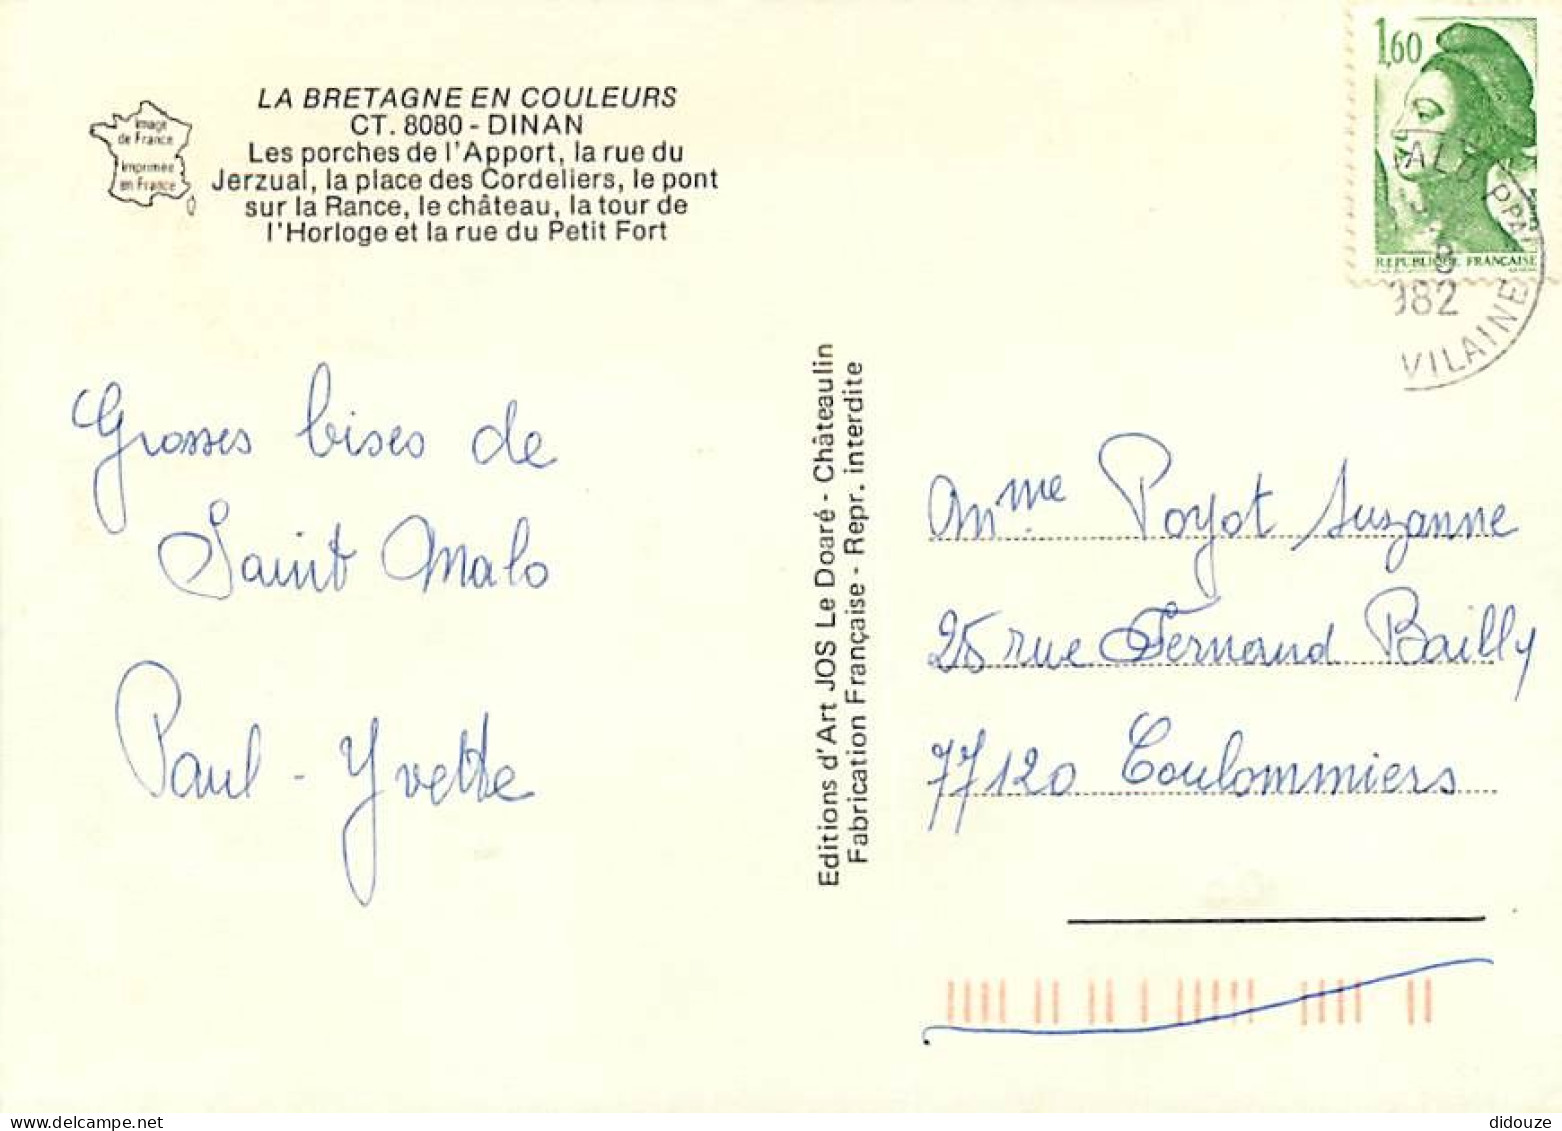 LA BRETAGNE EN COULEURS
CT. 8080 - DINAN
Les porches de l'Apport, la rue du
Jerzual, la place des Cordeliers, le pont
sur la Rance, le château, la tour de
l'Horloge et la rue du Petit Fort
Image
de France
Imprimée
en France
Grosses bises de
Saint Malo
Paul - Yvette
Editions d'Art JOS Le Doaré - Châteaulin
Fabrication Française - Repr. interdite
1,60
REPUBLIQUE FRANÇAISE
ALO PPAL
8
982
VILAINE
Mme Poyot Suzanne
25 rue Fernand Bailly
77120 Coulommiers
didouze